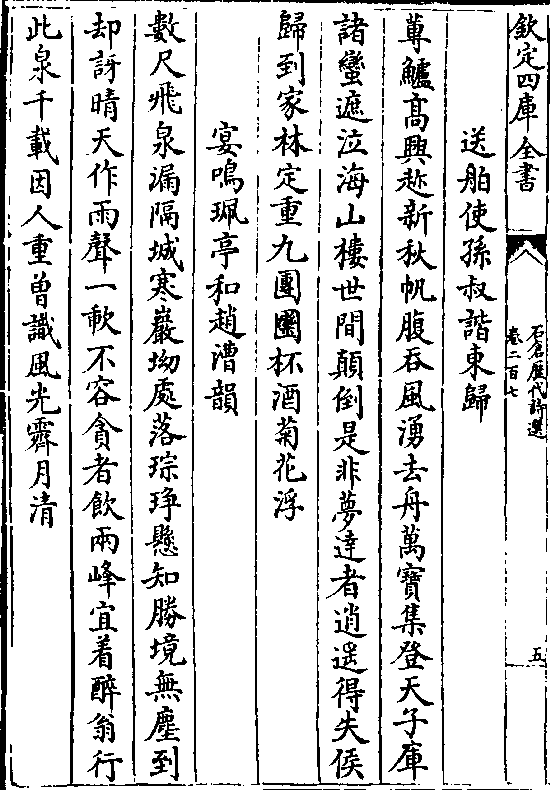 欽定四庫全書
石倉歷代詩選
卷二百七
五
送舶使孫叔諧東歸
蓴鱸髙興趂新秋帆腹吞風湧去舟萬寶集登天子庫
諸蠻遮泣海山樓世間顛倒是非夢達者逍遥得失侯
歸到家林定重九團圞杯酒菊花浮
宴鳴珮亭和趙漕韻
數尺飛泉漏隔城寒巖坳處落琮琤懸知勝境無塵到
却訝晴天作雨聲一軟不容貪者飲兩峰宜着醉翁行
此泉千載因人重曾識風光霽月清